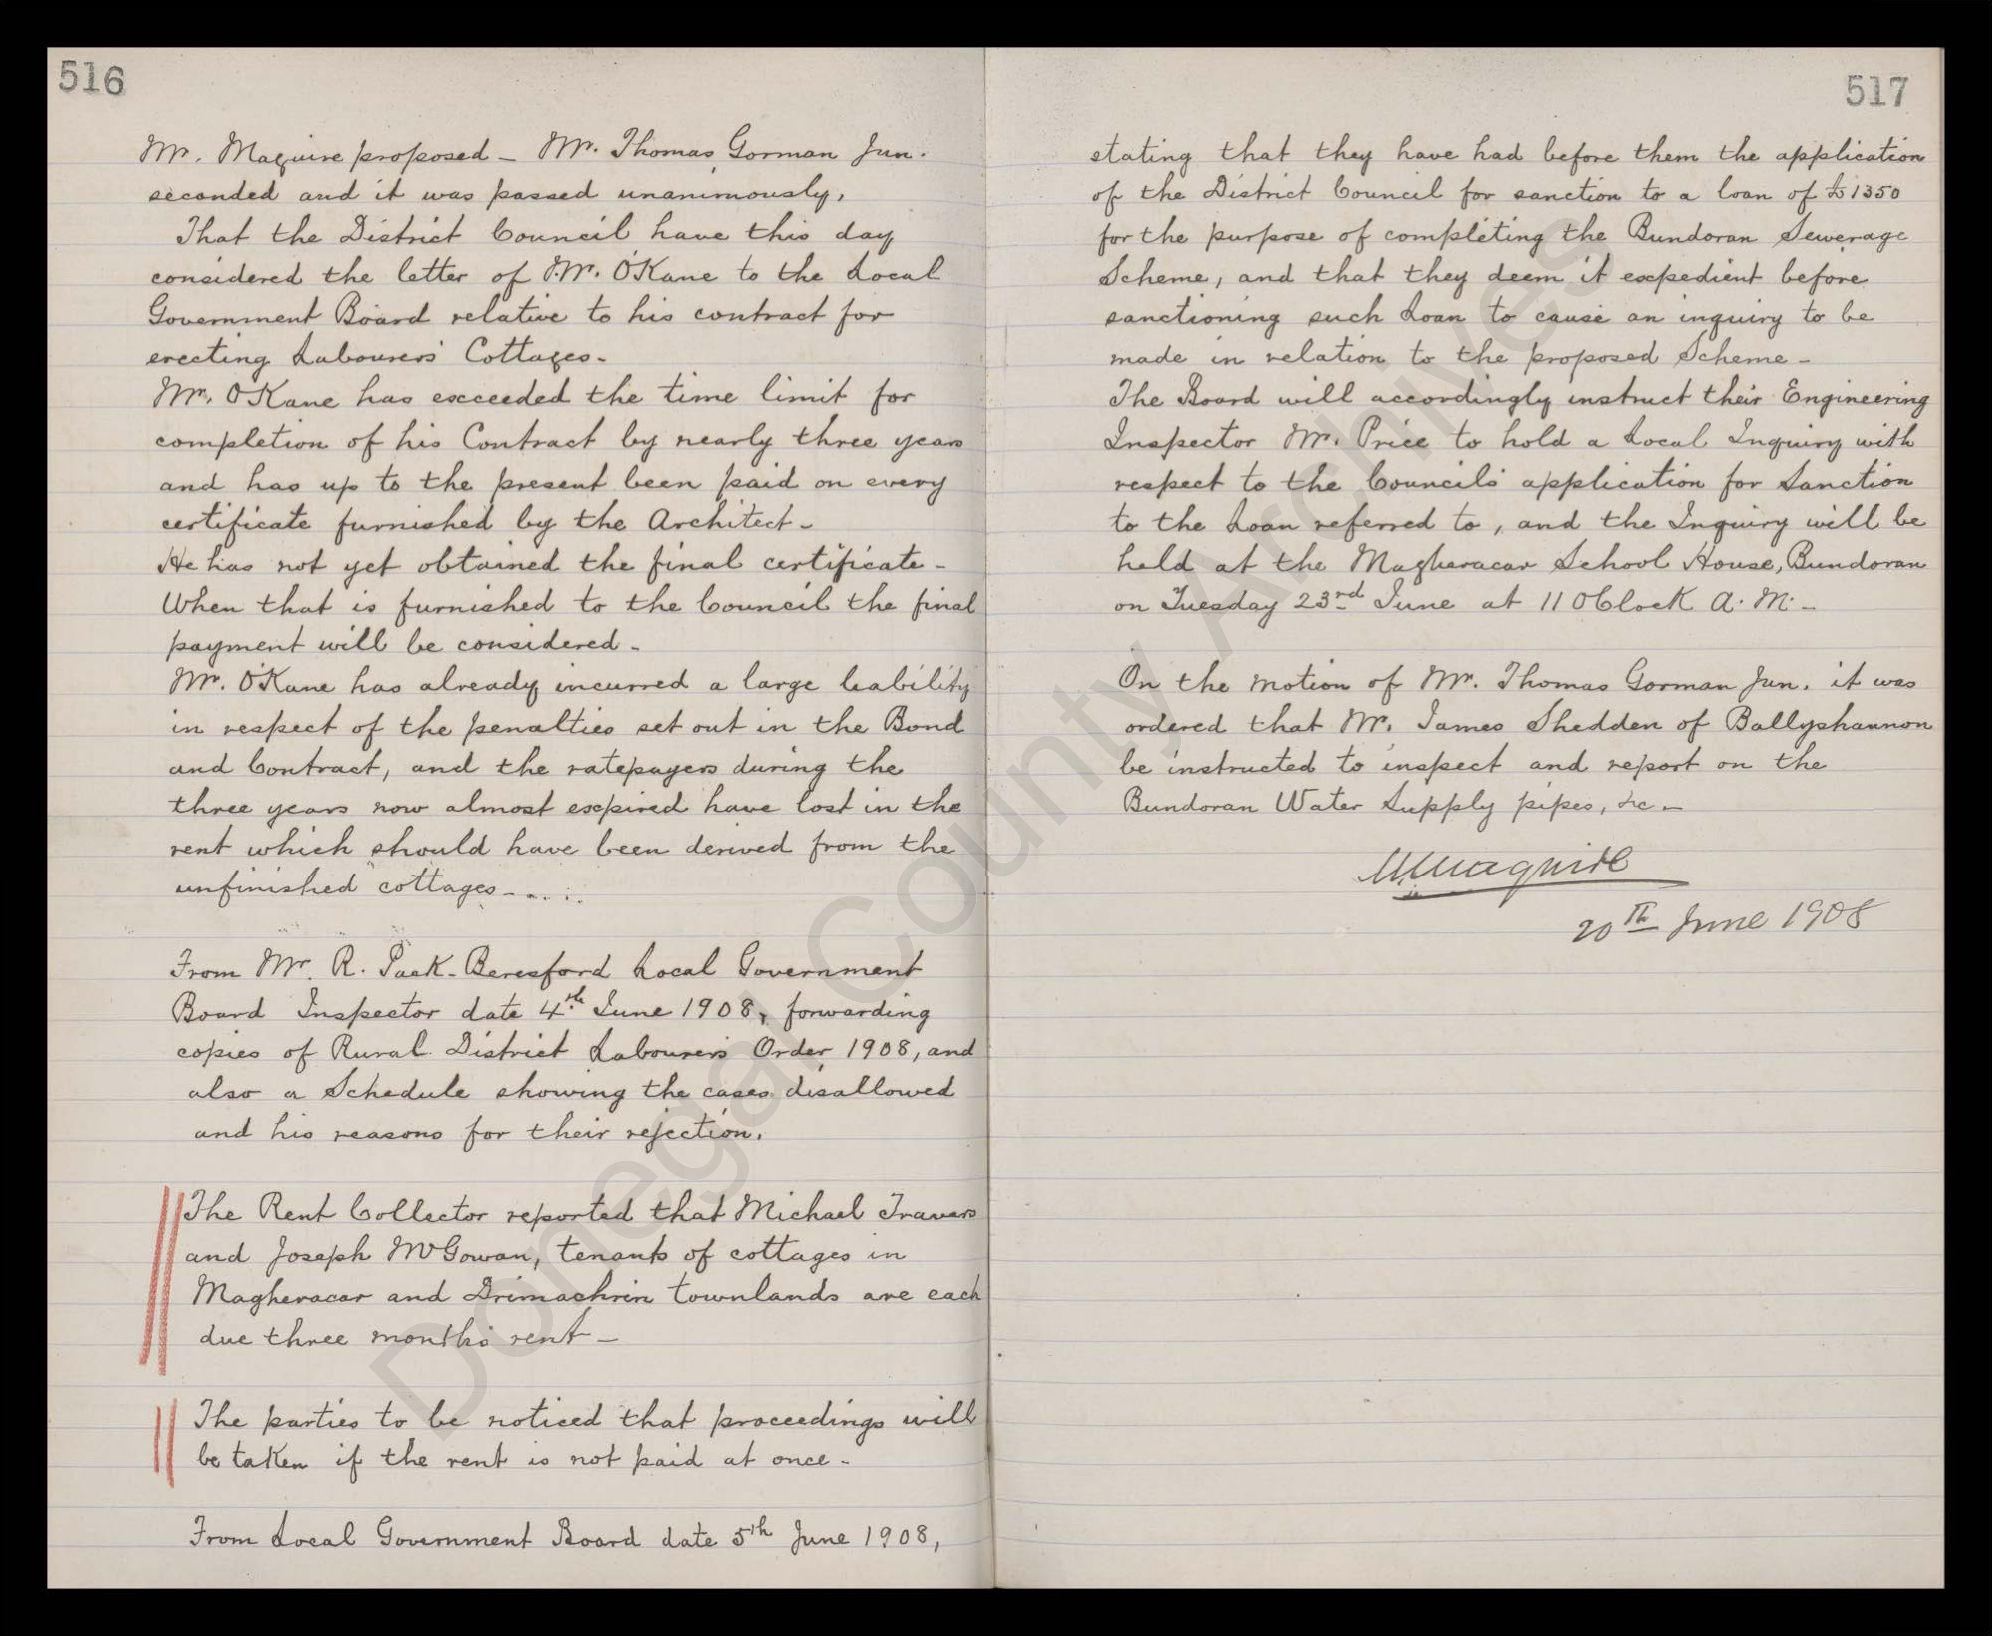 516
Mr. Maguire proposed - Mr. Thomas Gorman Jun.
seconded and it was passed unanimously,
That the District Council have this day
considered the letter of Mr. O'Kane to the Local
Government Board relative to his contract for
erecting Labourers' Cottages -
Mr. O'Kane has exceeded the time limit for
completion of his Contract by nearly three years
and has up to the present been paid on every
certificate furnished by the Architect -
He has not yet obtained the final certificate -
When that is furnished to the Council the final
payment will be considered -
Mr. O'Kane has already incurred a large leability
in respect of the penalties set out in the Bond
and Contract, and the ratepayers during the
three years now almost expired have lost in the
rent which should have been derived from the
unfinished cottages -
From Mr. R. Pack-Beresford Local Government
Board Inspector date 4th June 1908, forwarding
copies of Rural District Labourers Order 1908, and
also a Schedule showing the cases disallowed
and his reasons for their rejection.
The Rent Collector reported that Michael Travers
and Joseph McGowan, tenants of cottages in
Magheracar and Drimachrin townlands are each
due three months rent -
The parties to be noticed that proceedings will
be taken if the rent is not paid at once -
From Local Government Board date 5th June 1908,
517
stating that they have had before them the application
of the District Council for sanction to a loan of £1350
for the purpose of completing the Bundoran Sewerage
Scheme, and that they deem it expedient before
sanctioning such Loan to cause an inquiry to be
made in relation to the proposed Scheme -
The Board will accordingly instruct their Engineering
Inspector Mr. Price to hold a Local Inquiry with
respect to the Council's application for Sanction
to the Loan referred to, and the Inquiry will be
held at the Magheracar School House, Bundoran
on Tuesday 23rd June at 11 O'Clock A. M. -
On the motion of Mr. Thomas Gorman Jun. it was
ordered that Mr. James Shedden of Ballyshannon
be instructed to inspect and report on the
Bundoran Water Supply pipes, &c -
Maguire
20th June 1908
Donegal County Archives